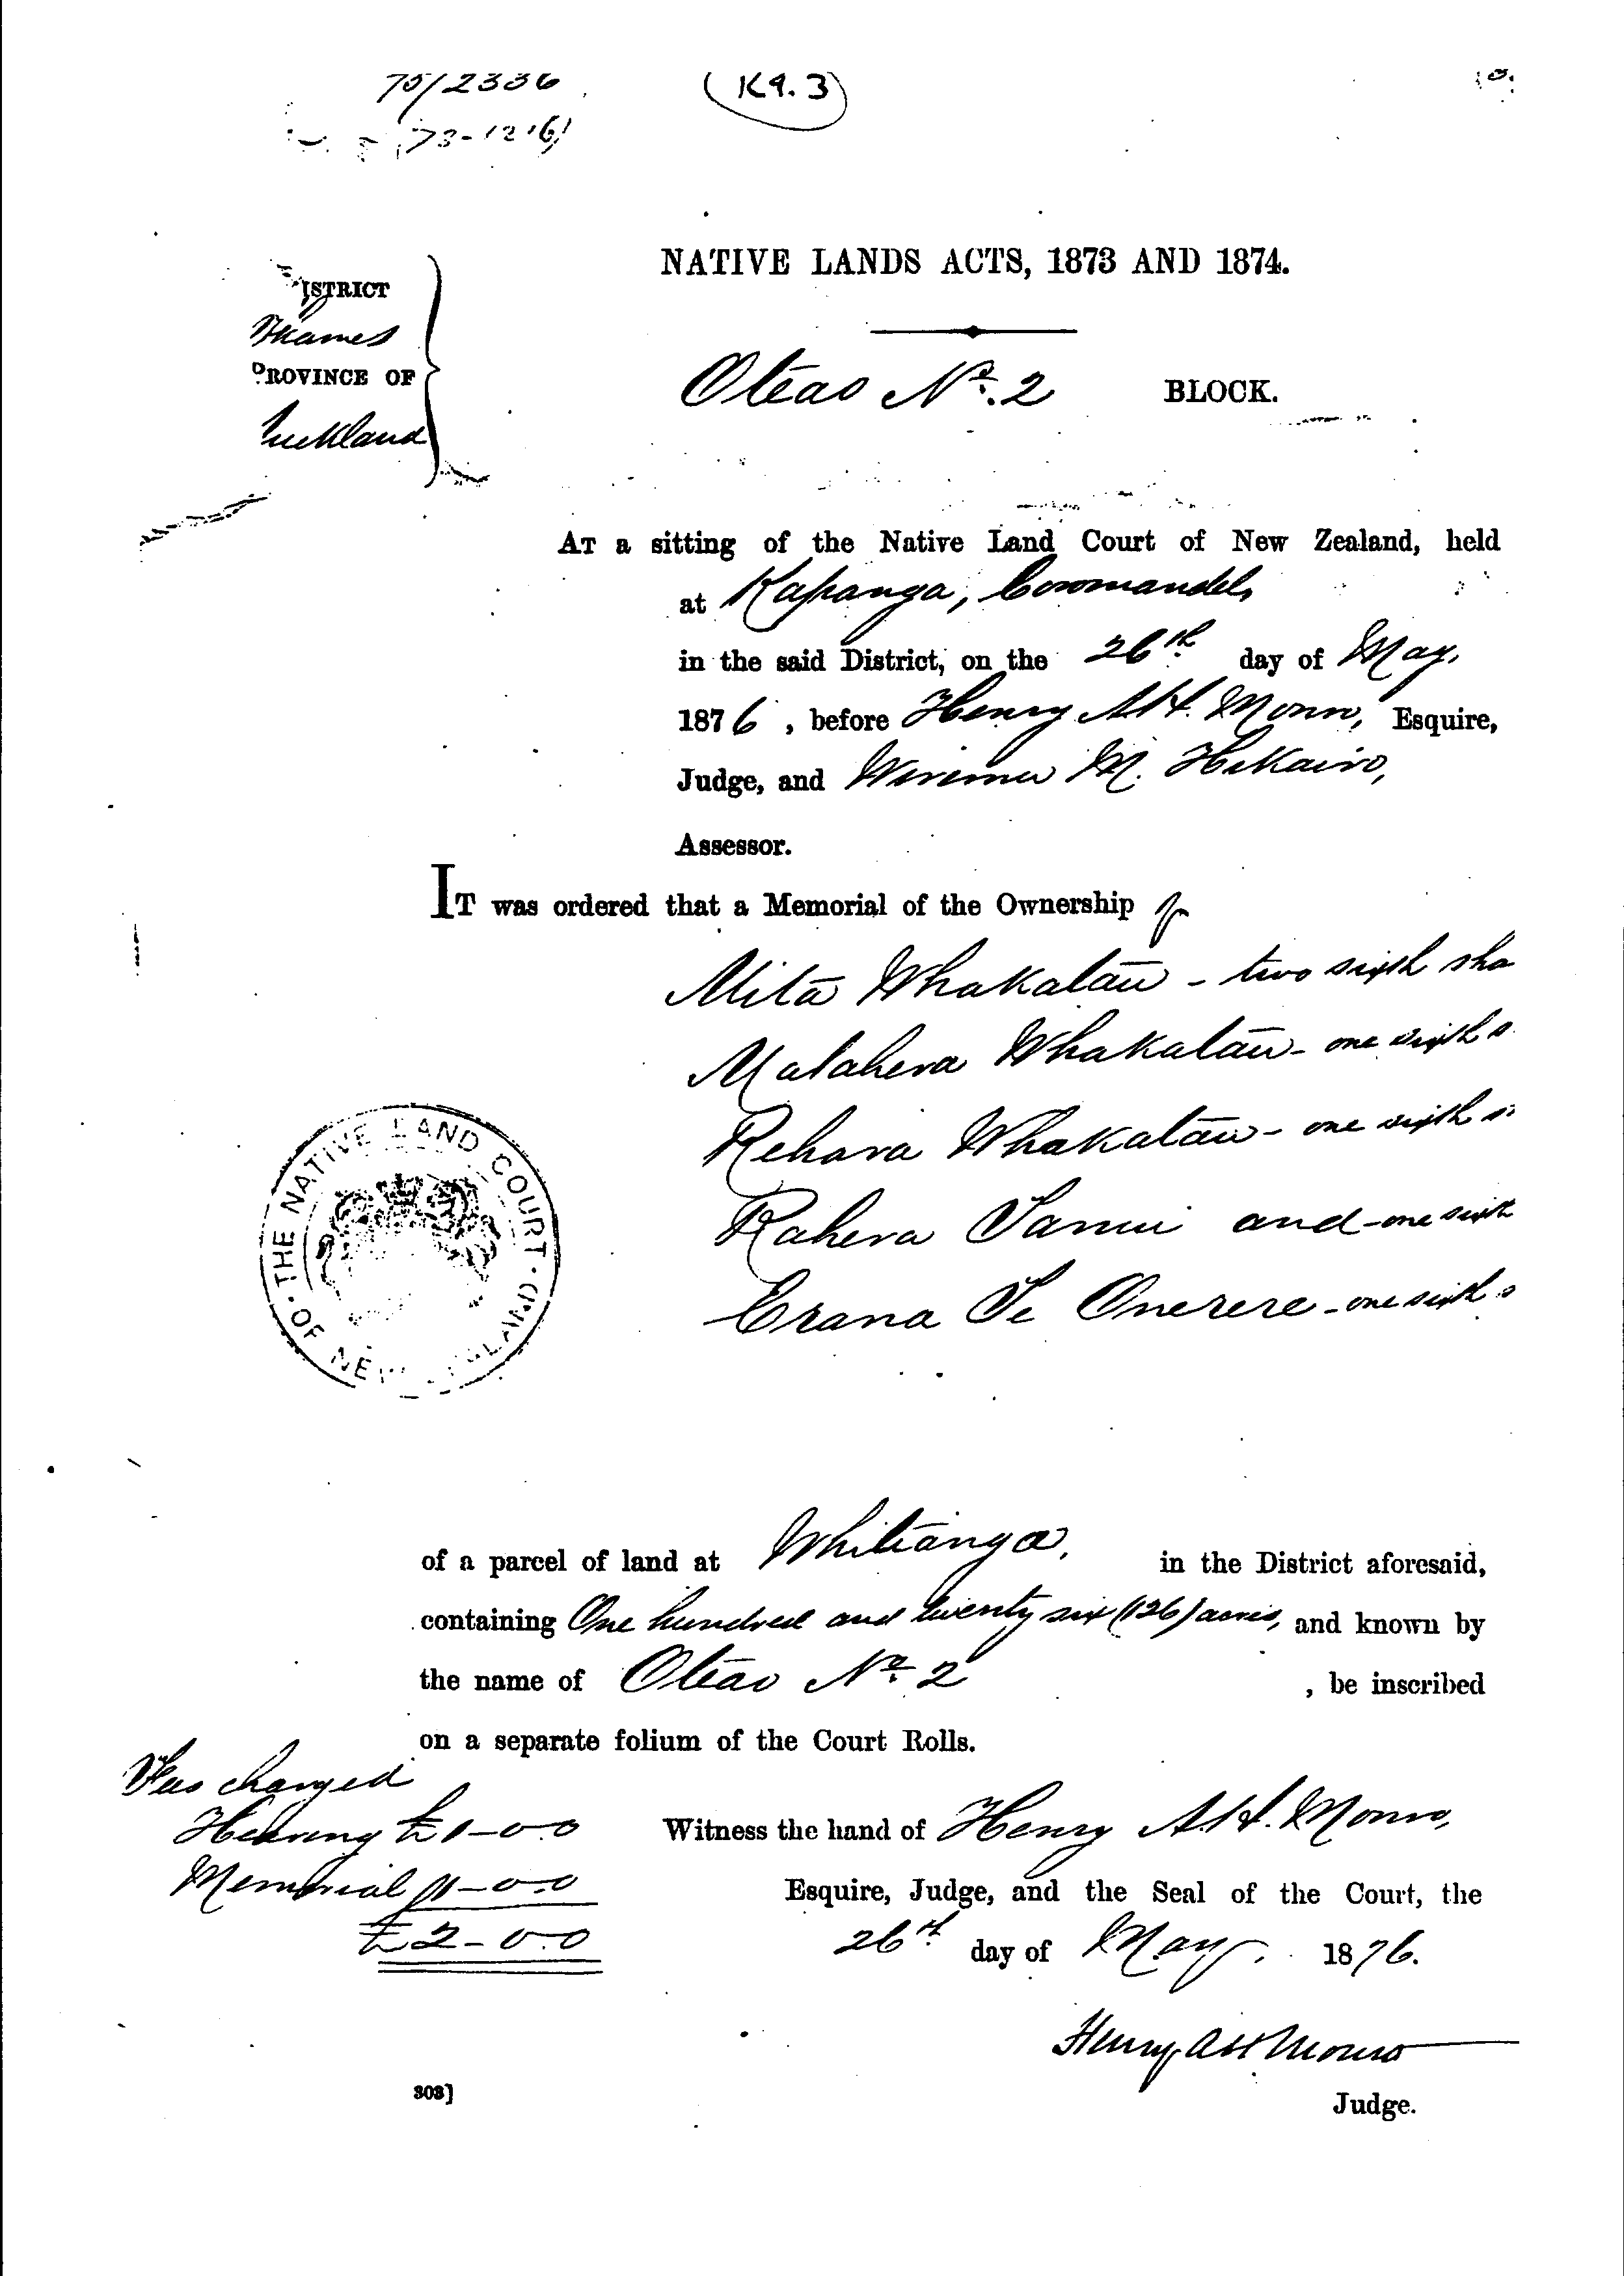 75/2336
(K9.3)
NATIVE LANDS ACTS, 1873 AND 1874.
ISTRICT
Thames
PROVINCE OF
Auckland
Oteao No. 2 BLOCK.
AT a sitting of the Native Land Court of New Zealand, held
at Kapanga, Coromandel,
in the said District, on the 26th day of May,
1876, before Henry A.H. Monro, Esquire,
Judge, and Wiremu M. Hikairo,
Assessor.
IT was ordered that a Memorial of the Ownership of
Mita Whakatau - two sixth sha
Matahera Whakatau - one sixth s
Rehara Whakatau - one sixth s
Rahera Tanui and - one sixth
Erana Te Onerere - one sixth s
THE NATIVE LAND COURT OF NEW ZEALAND
of a parcel of land at Whitianga, in the District aforesaid,
containing One hundred and twenty six (126) acres, and known by
the name of Oteao No. 2, be inscribed
on a separate folium of the Court Rolls.
Fees charged
Hearing £1-0.0
Memorial 1-0.0
£2-0.0
Witness the hand of Henry A.H. Monro,
Esquire, Judge, and the Seal of the Court, the
26th day of May, 1876.
Henry A H Monro
Judge.
303]